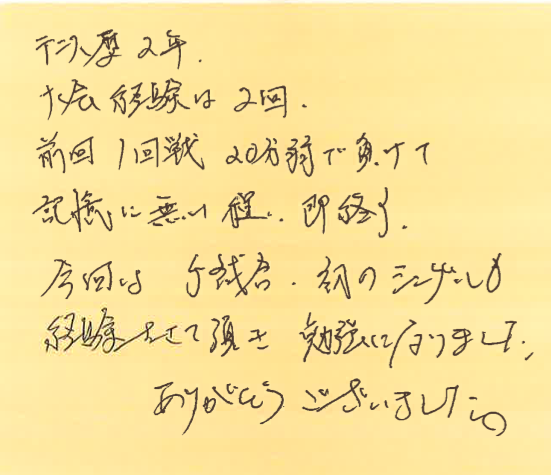 テニス歴 2年.
大会経験は 2回.
前回 1回戦 20分弱で負けて
記憶に無い程、即終了.
今回は 5試合. 初のシングルも
経験させて頂き 勉強になりました、
ありがとうございました